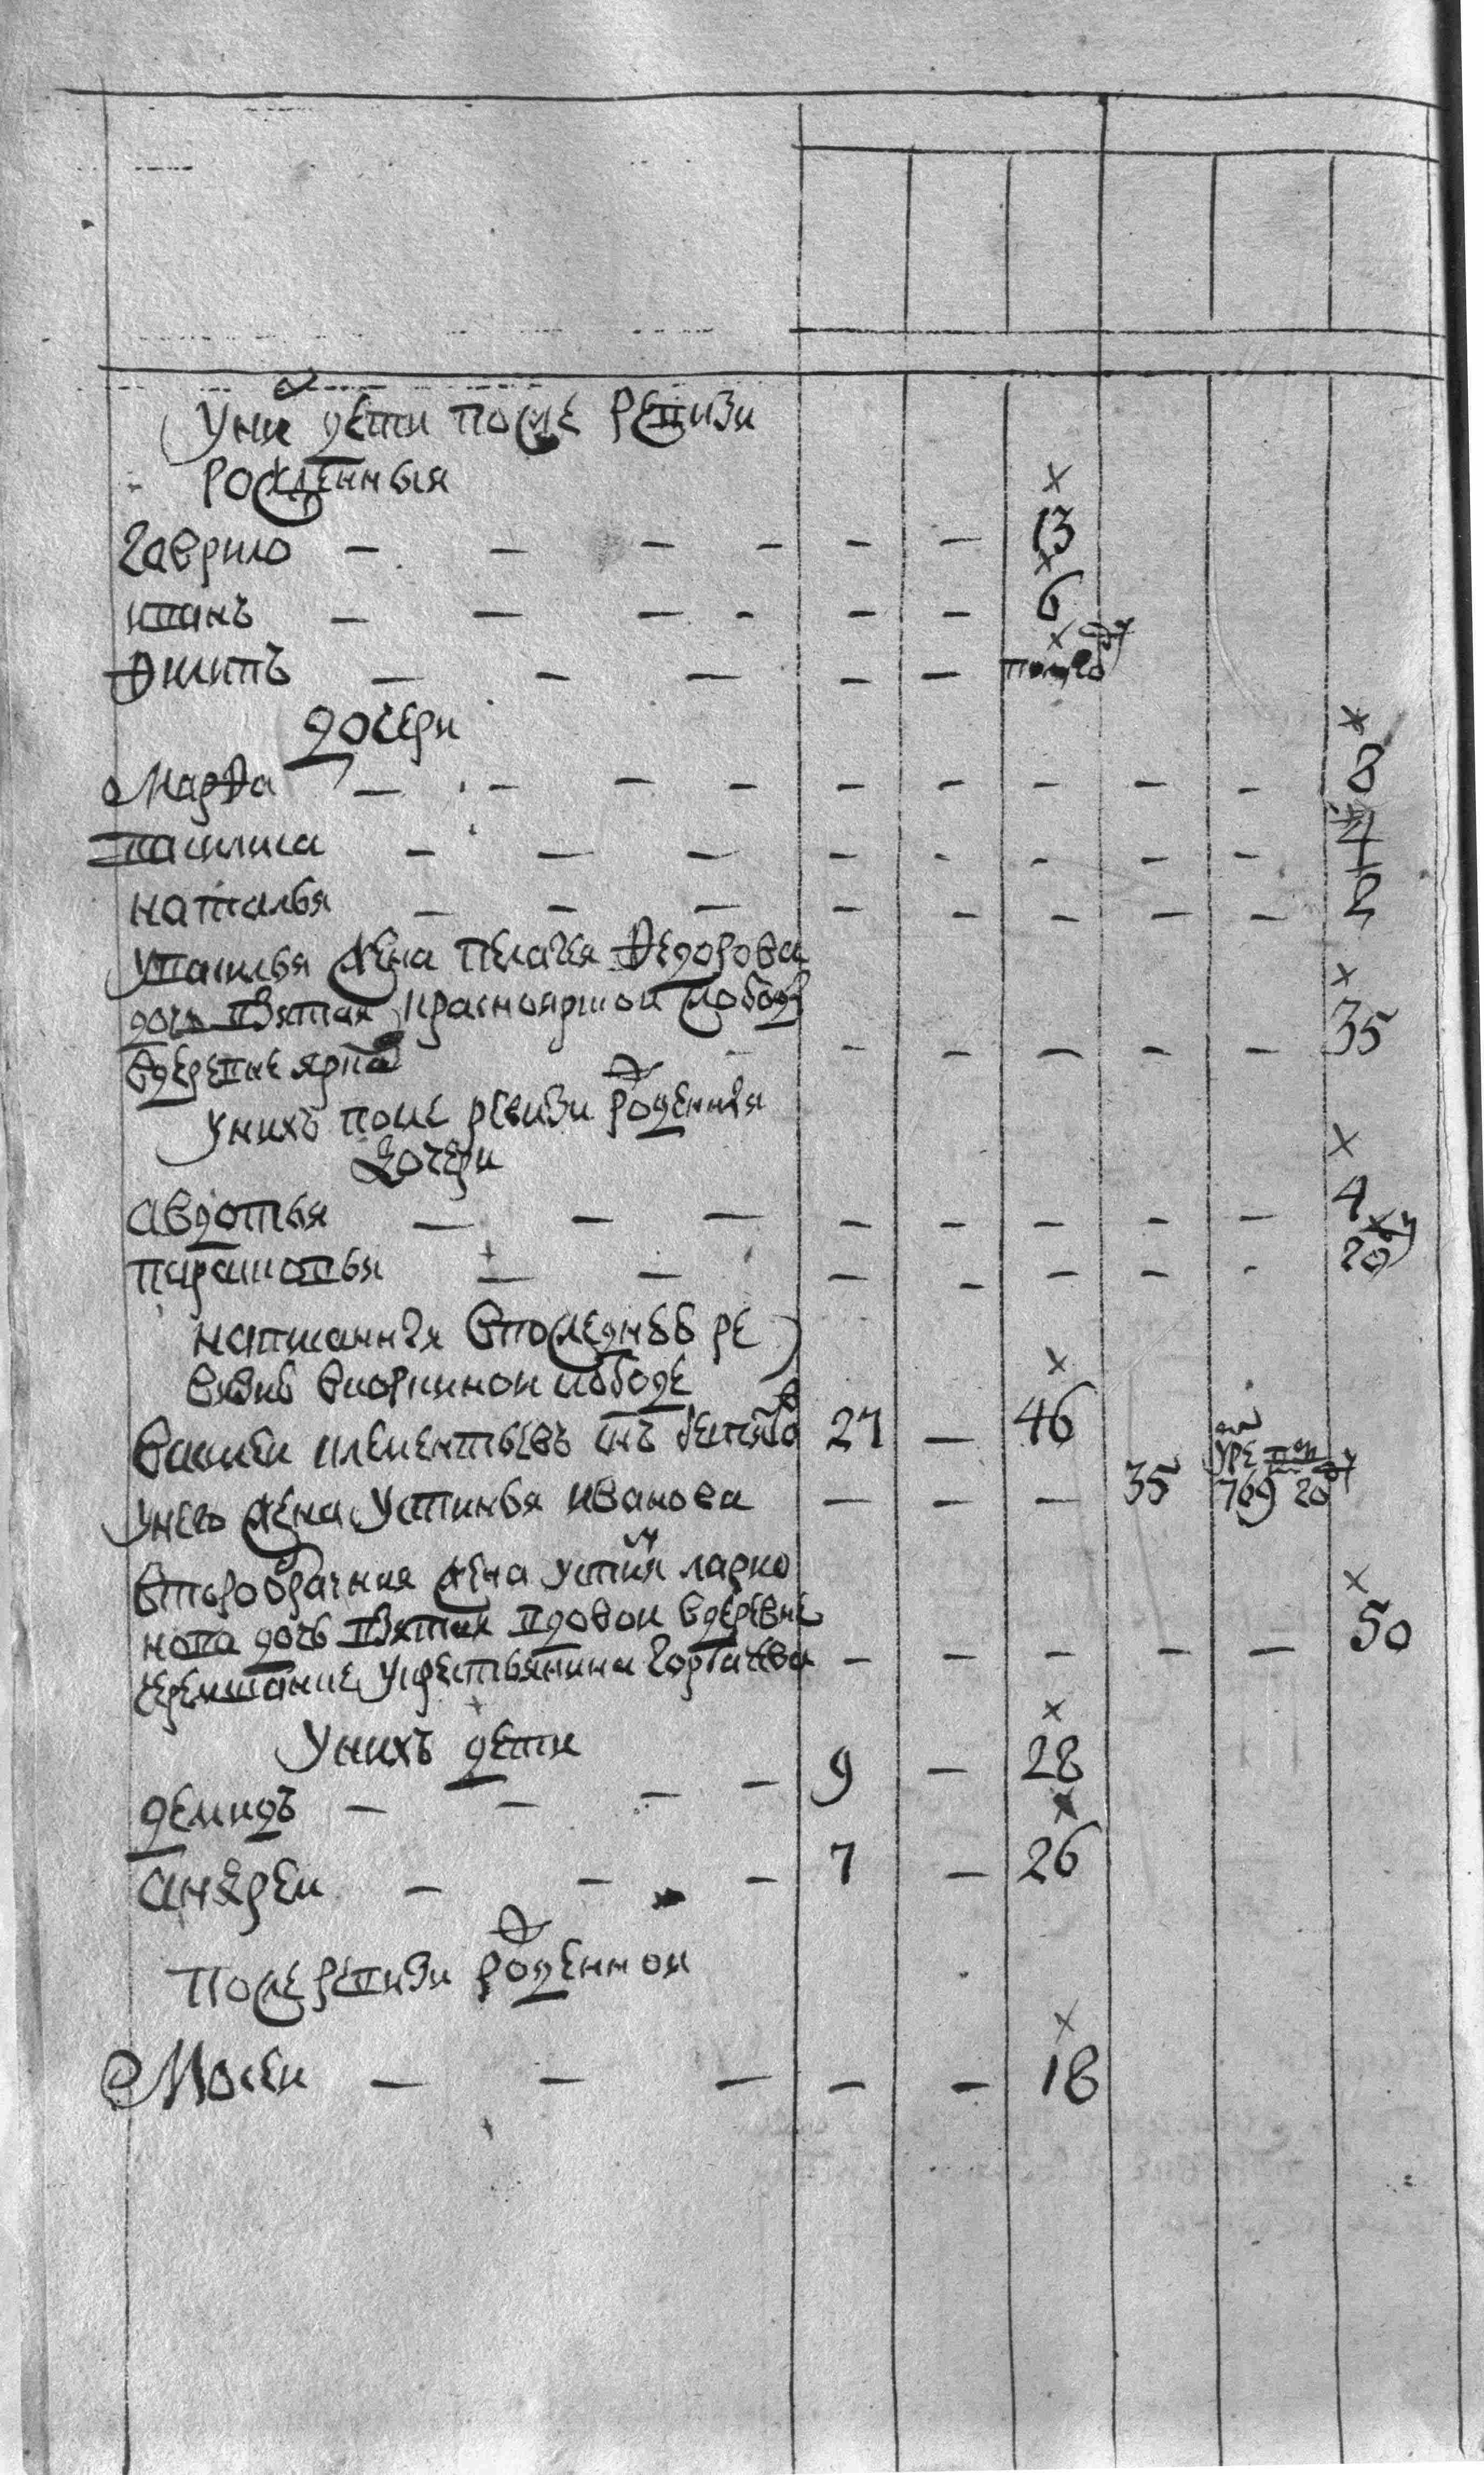 У них дети после ревизи
рожденныя
Гаврило — — — — — — 13
иванъ — — — — — — 6
Филипъ — — — — — полго
дочери
Марфа — — — — — — — — — 8
василиса — — — — — — — — 4
наталья — — — — — — — — 2
У василья жена пелагея Федорова
дочь взятая красноярской слобод
вдеревне — — — — — 35
У нихъ после ревизи роденныя
дочери
авдотья — — — — — — — — 4
парасковья — — — — — — — 20
написанныя впоследней ре
визиб слободе
Василеи клементьевъ 27 — 46
У него жена Устинья иванова — — — 35 769 20
второбрачная жена устин ларио
нова дочь взятая вдовои вдеревне
черемшанке у крестьянина Горбачева — — — — — 50
У нихъ дети
демидъ — — — — 9 — 28
андреи — — — 7 — 26
После ревизи роденнои
Мосеи — — — — — 18